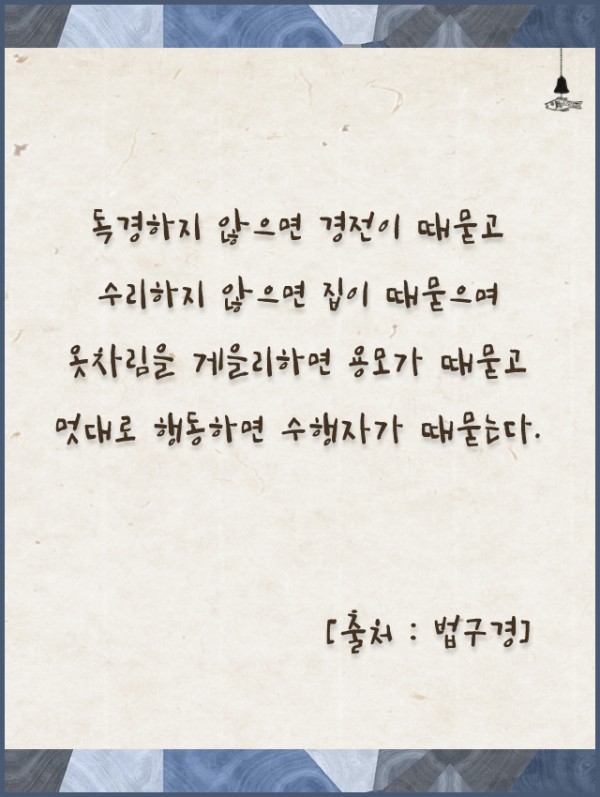 독경하지 않으면 경전이 때묻고
수리하지 않으면 집이 때묻으며
옷차림을 게을리하면 용모가 때묻고
멋대로 행동하면 수행자가 때묻는다.
[출처 : 법구경]